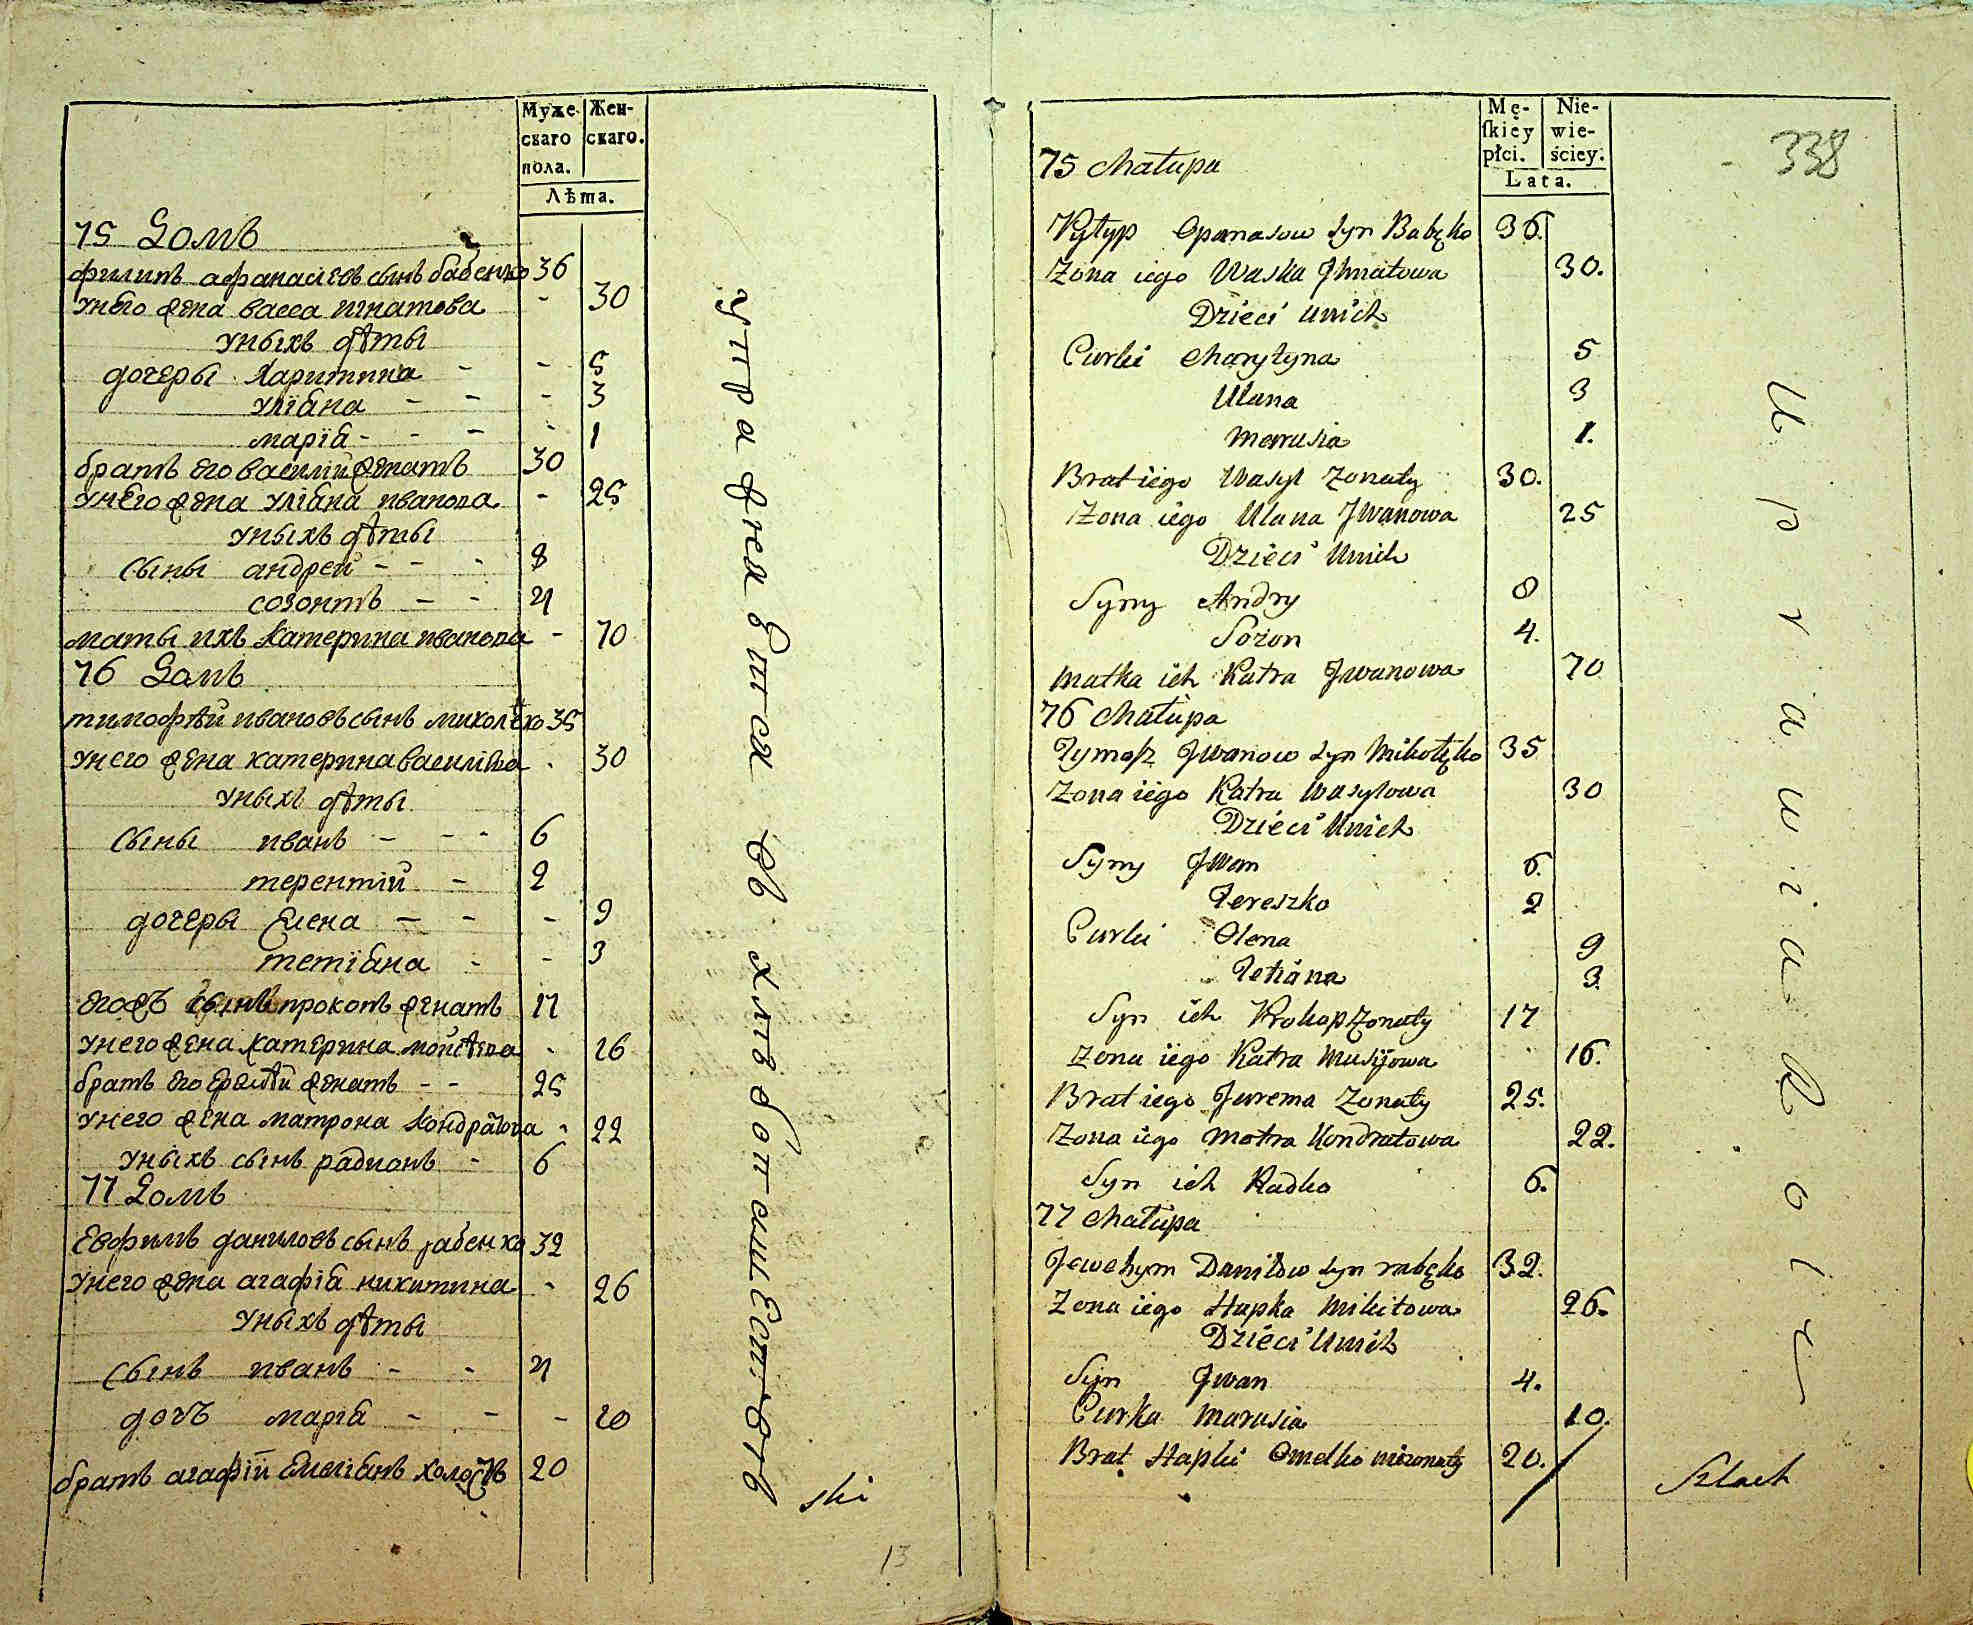 Муже-
скаго
пола.
Жен-
скаго.
Лѣта.
75 Домъ
филипъ афанасиевъ сынъ бабенко 36
унего жена васса игнатова - 30
уныхъ дѣты
дочеры харитина - - 5
улїяна - - - 3
марїя - - - - 1
братъ его василий женатъ 30
унего жена улїяна иванова - 25
уныхъ дѣты
сыны андрей - - - 8
созонтъ - - 4
маты ихъ катерина иванова - 70
76 Домъ
тимофѣй ивановъ сынъ миколенко 35
унего жена катерина василїева - 30
уныхъ дѣты
сыны иванъ - - - 6
терентий - 2
дочеры Елена - - - 9
тетїяна - - 3
егожъ сынъ прокопъ женатъ 17
унего жена катерина мойсѣева - 16
братъ его еремѣй женатъ - - 25
унего жена матрона кондратова - 22
уныхъ сынъ радионъ - 6
77 Домъ
Евфимъ даниловъ сынъ рабенко 32
унего жена агафїя никитина - 26
уныхъ дѣты
сынъ иванъ - - 4
дочъ марїя - - - 10
братъ агафїй Емелїянъ холостъ 20
упражняЕтся въ хлѣбопашЕствѣ
ski
13
Mę-
ſkiey
płci.
Nie-
wie-
ściey.
Lata.
338
75 Chałupa
Pyłyp Opanasow Syn Babęko 36.
Zona iego Waska Jhnatowa 30.
Dzieci unich
Curki Charytyna 5
Ulana 3
Marusia 1.
Brat iego Wasyl Zonaty 30.
Zona iego Ulana Jwanowa 25
Dzieci Unich
Syny Andry 8
Sozon 4.
Matka ich Katra Jwanowa 70
76 Chałupa
Tymosz Jwanow Syn Mikołęko 35
Zona iego Katra Wasylowa 30
Dzieci Unich
Syny Jwan 6.
Tereszko 2
Curki Olena 9
Tetiana 3.
Syn ich Prokop Zonaty 17
Zona iego Katra Musijowa 16.
Brat iego Jurema Zonaty 25.
Zona iego Motra Kondratowa 22.
Syn ich Radko 6.
77 Chałupa
Jewchym Daniłow Syn rabęko 32.
Zona iego Hapka Mikitowa 26.
Dzieci Unich
Syn Jwan 4.
Curka Marusia 10.
Brat Hapki Omelko niezonaty 20.
Uprawia Rolę
Szlach